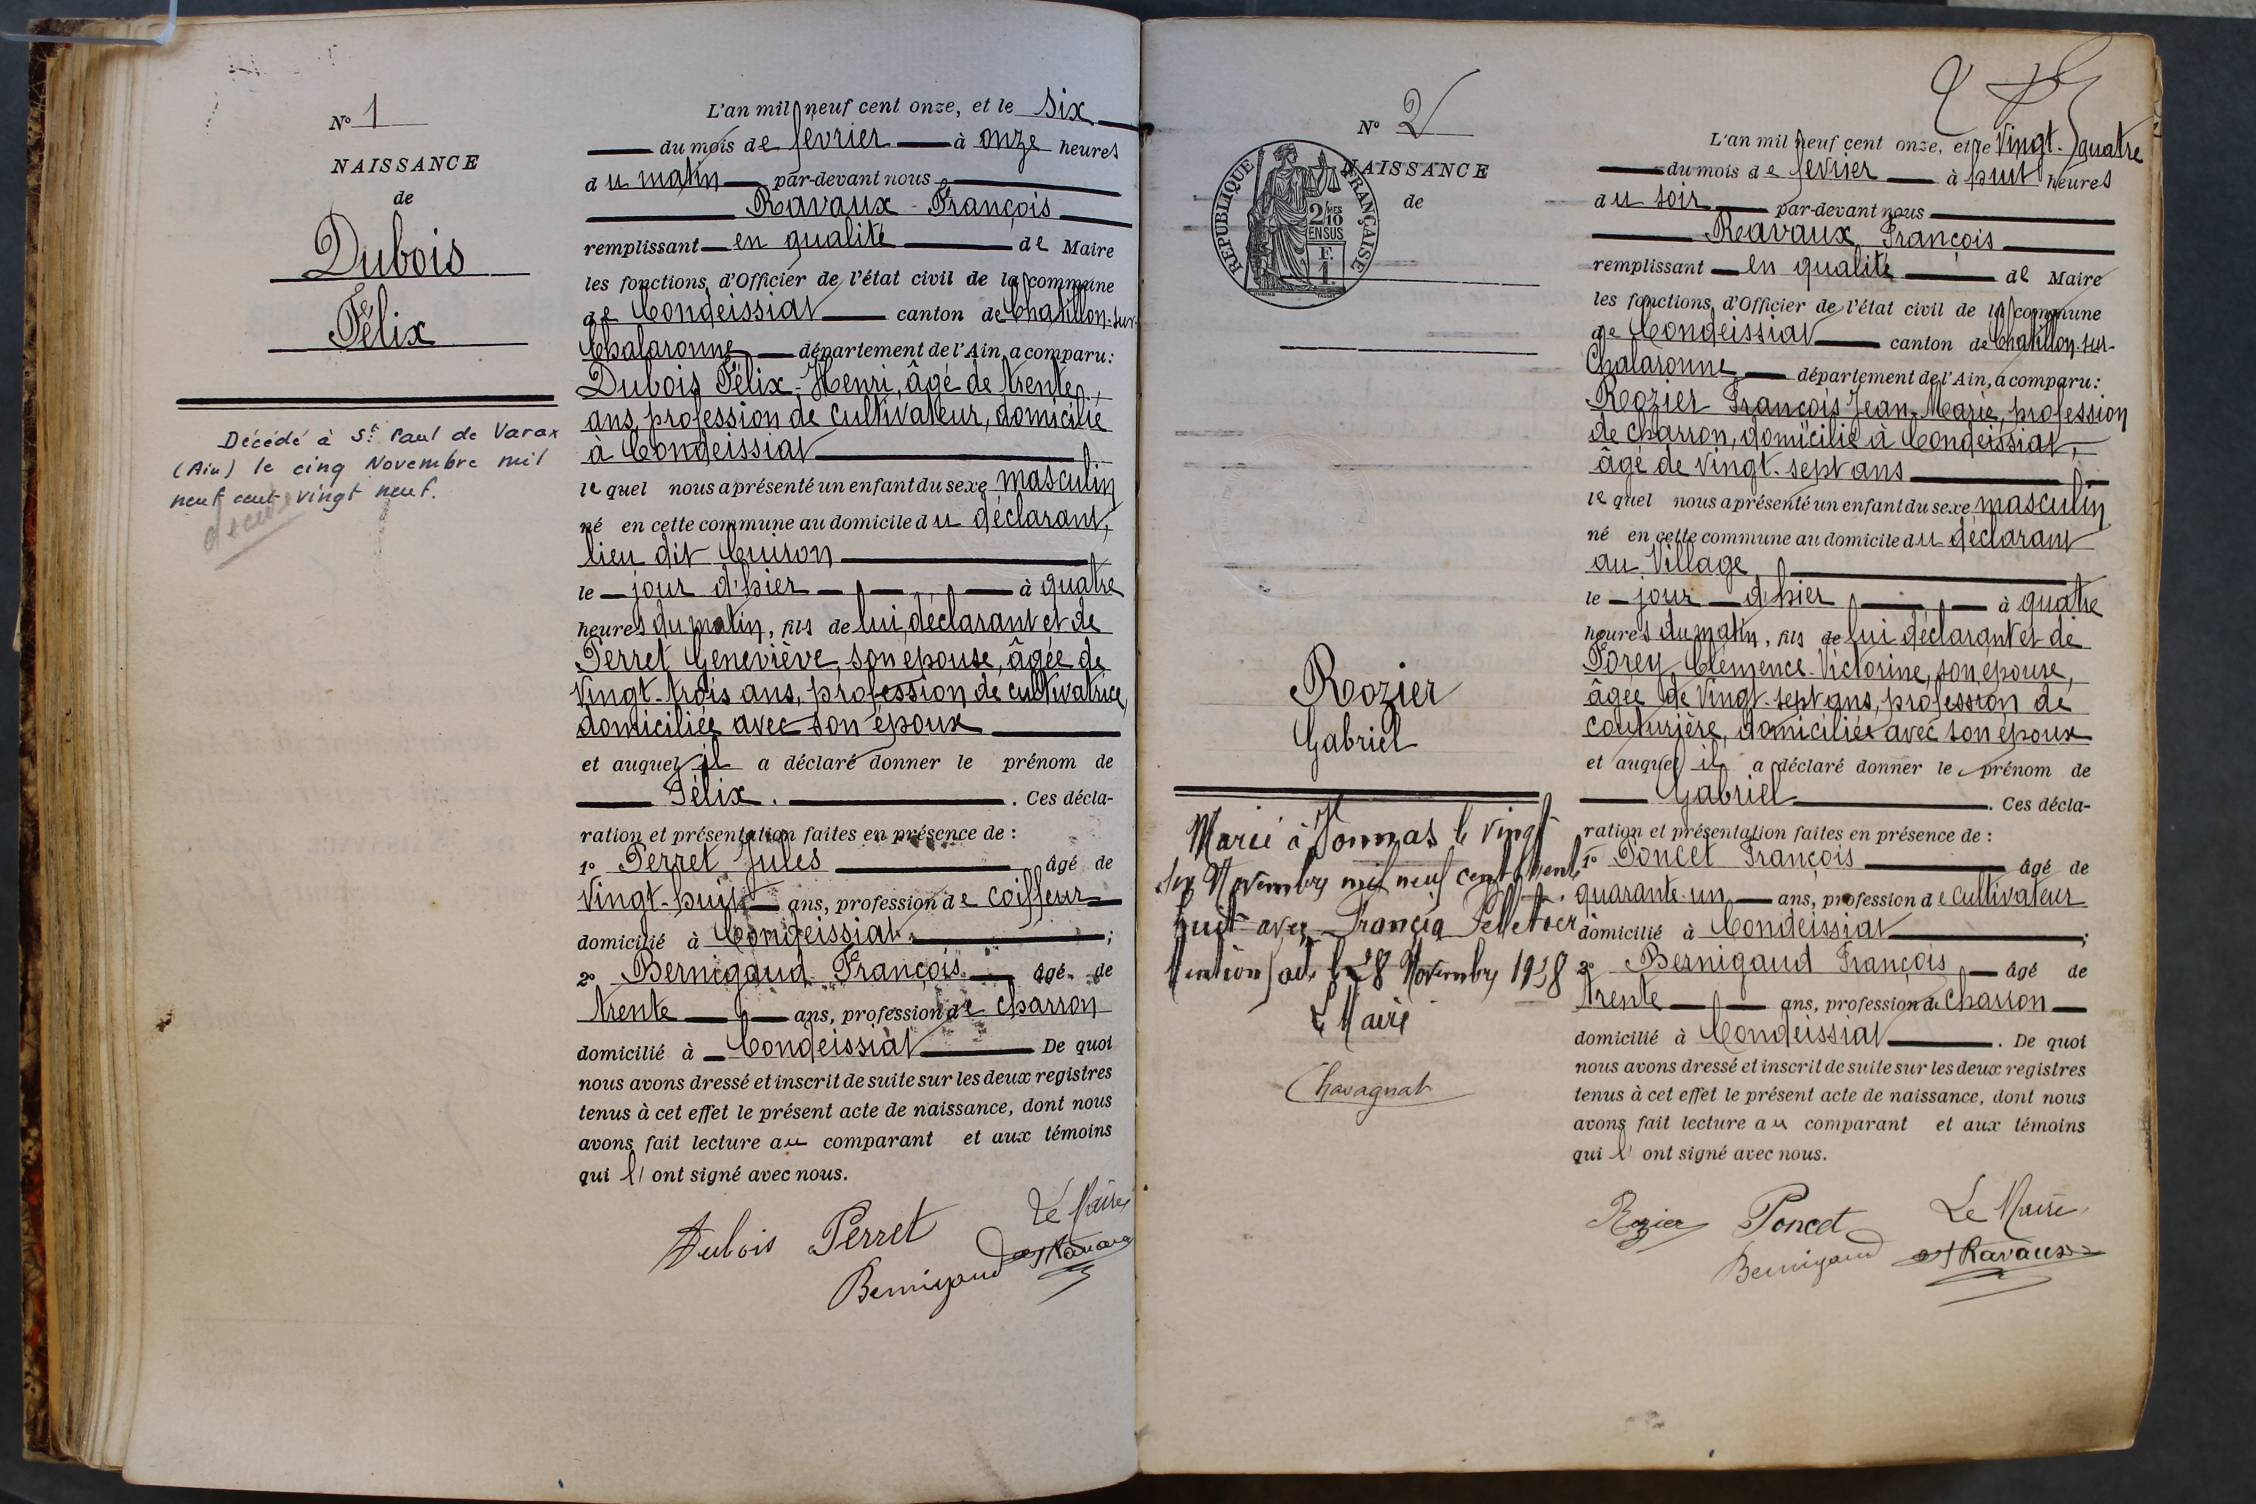 N° 1
NAISSANCE
de
Dubois
Félix
Décédé à St Paul de Varax
(Ain) le cinq Novembre mil
neuf cent vingt neuf.
L'an mil neuf cent onze, et le six
du mois de fevrier à onze heures
du matin par-devant nous
Ravaux François
remplissant en qualité de Maire
les fonctions d'Officier de l'état civil de la commune
de Condeissiat canton de Chatillon-sur-
Chalaronne département de l'Ain, a comparu:
Dubois Félix-Henri, âgé de trente
ans, profession de cultivateur, domicilié
à Condeissiat
lequel nous a présenté un enfant du sexe masculin
né en cette commune au domicile du déclarant,
lieu dit Cuiron
le jour d'hier à quatre
heures du matin, fils de lui déclarant et de
Perret Geneviève, son épouse, âgée de
vingt-trois ans, profession de cultivatrice,
domiciliée avec son époux
et auquel il a déclaré donner le prénom de
Félix. . Ces décla-
ration et présentation faites en présence de :
1° Perret Jules âgé de
vingt-huit ans, profession de coiffeur
domicilié à Condeissiat ;
2° Bernigaud François âgé de
trente ans, profession de charron
domicilié à Condeissiat De quoi
nous avons dressé et inscrit de suite sur les deux registres
tenus à cet effet le présent acte de naissance, dont nous
avons fait lecture au comparant et aux témoins
qui l'ont signé avec nous.
Dubois Perret Le Maire
Bernigaud Ravaux
N° 2
NAISSANCE
de
RÉPUBLIQUE FRANÇAISE
2/10
EN SUS
F.
1.
Rozier
Gabriel
Marié à Jonmas le vingt
six Novembre mil neuf cent trente
huit avec Francia Pelletier
Mention faite le 28 Novembre 1938
Le Maire
Chavagnat
L'an mil neuf cent onze, et le vingt-quatre
du mois de fevrier à huit heures
du soir par-devant nous
Ravaux François
remplissant en qualité de Maire
les fonctions d'Officier de l'état civil de la commune
de Condeissiat canton de Chatillon-sur-
Chalaronne département de l'Ain, a comparu:
Rozier François Jean-Marie, profession
de charron, domicilié à Condeissiat,
âgé de vingt-sept ans
lequel nous a présenté un enfant du sexe masculin
né en cette commune au domicile du déclarant
au Village
le jour d'hier à quatre
heures du matin, fils de lui déclarant et de
Porey Clémence-Victorine, son épouse,
âgée de vingt-sept ans, profession de
couturière, domiciliée avec son époux
et auquel il a déclaré donner le prénom de
Gabriel . Ces décla-
ration et présentation faites en présence de :
1° Poncet François âgé de
quarante-un ans, profession de cultivateur
domicilié à Condeissiat ;
2° Bernigaud François âgé de
trente ans, profession de charron
domicilié à Condeissiat . De quoi
nous avons dressé et inscrit de suite sur les deux registres
tenus à cet effet le présent acte de naissance, dont nous
avons fait lecture au comparant et aux témoins
qui l'ont signé avec nous.
Rozier Poncet Le Maire
Bernigaud Ravaux